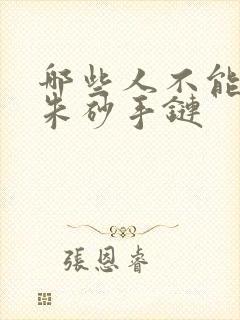 哪些人不能
朱砂手鏈
張恩睿